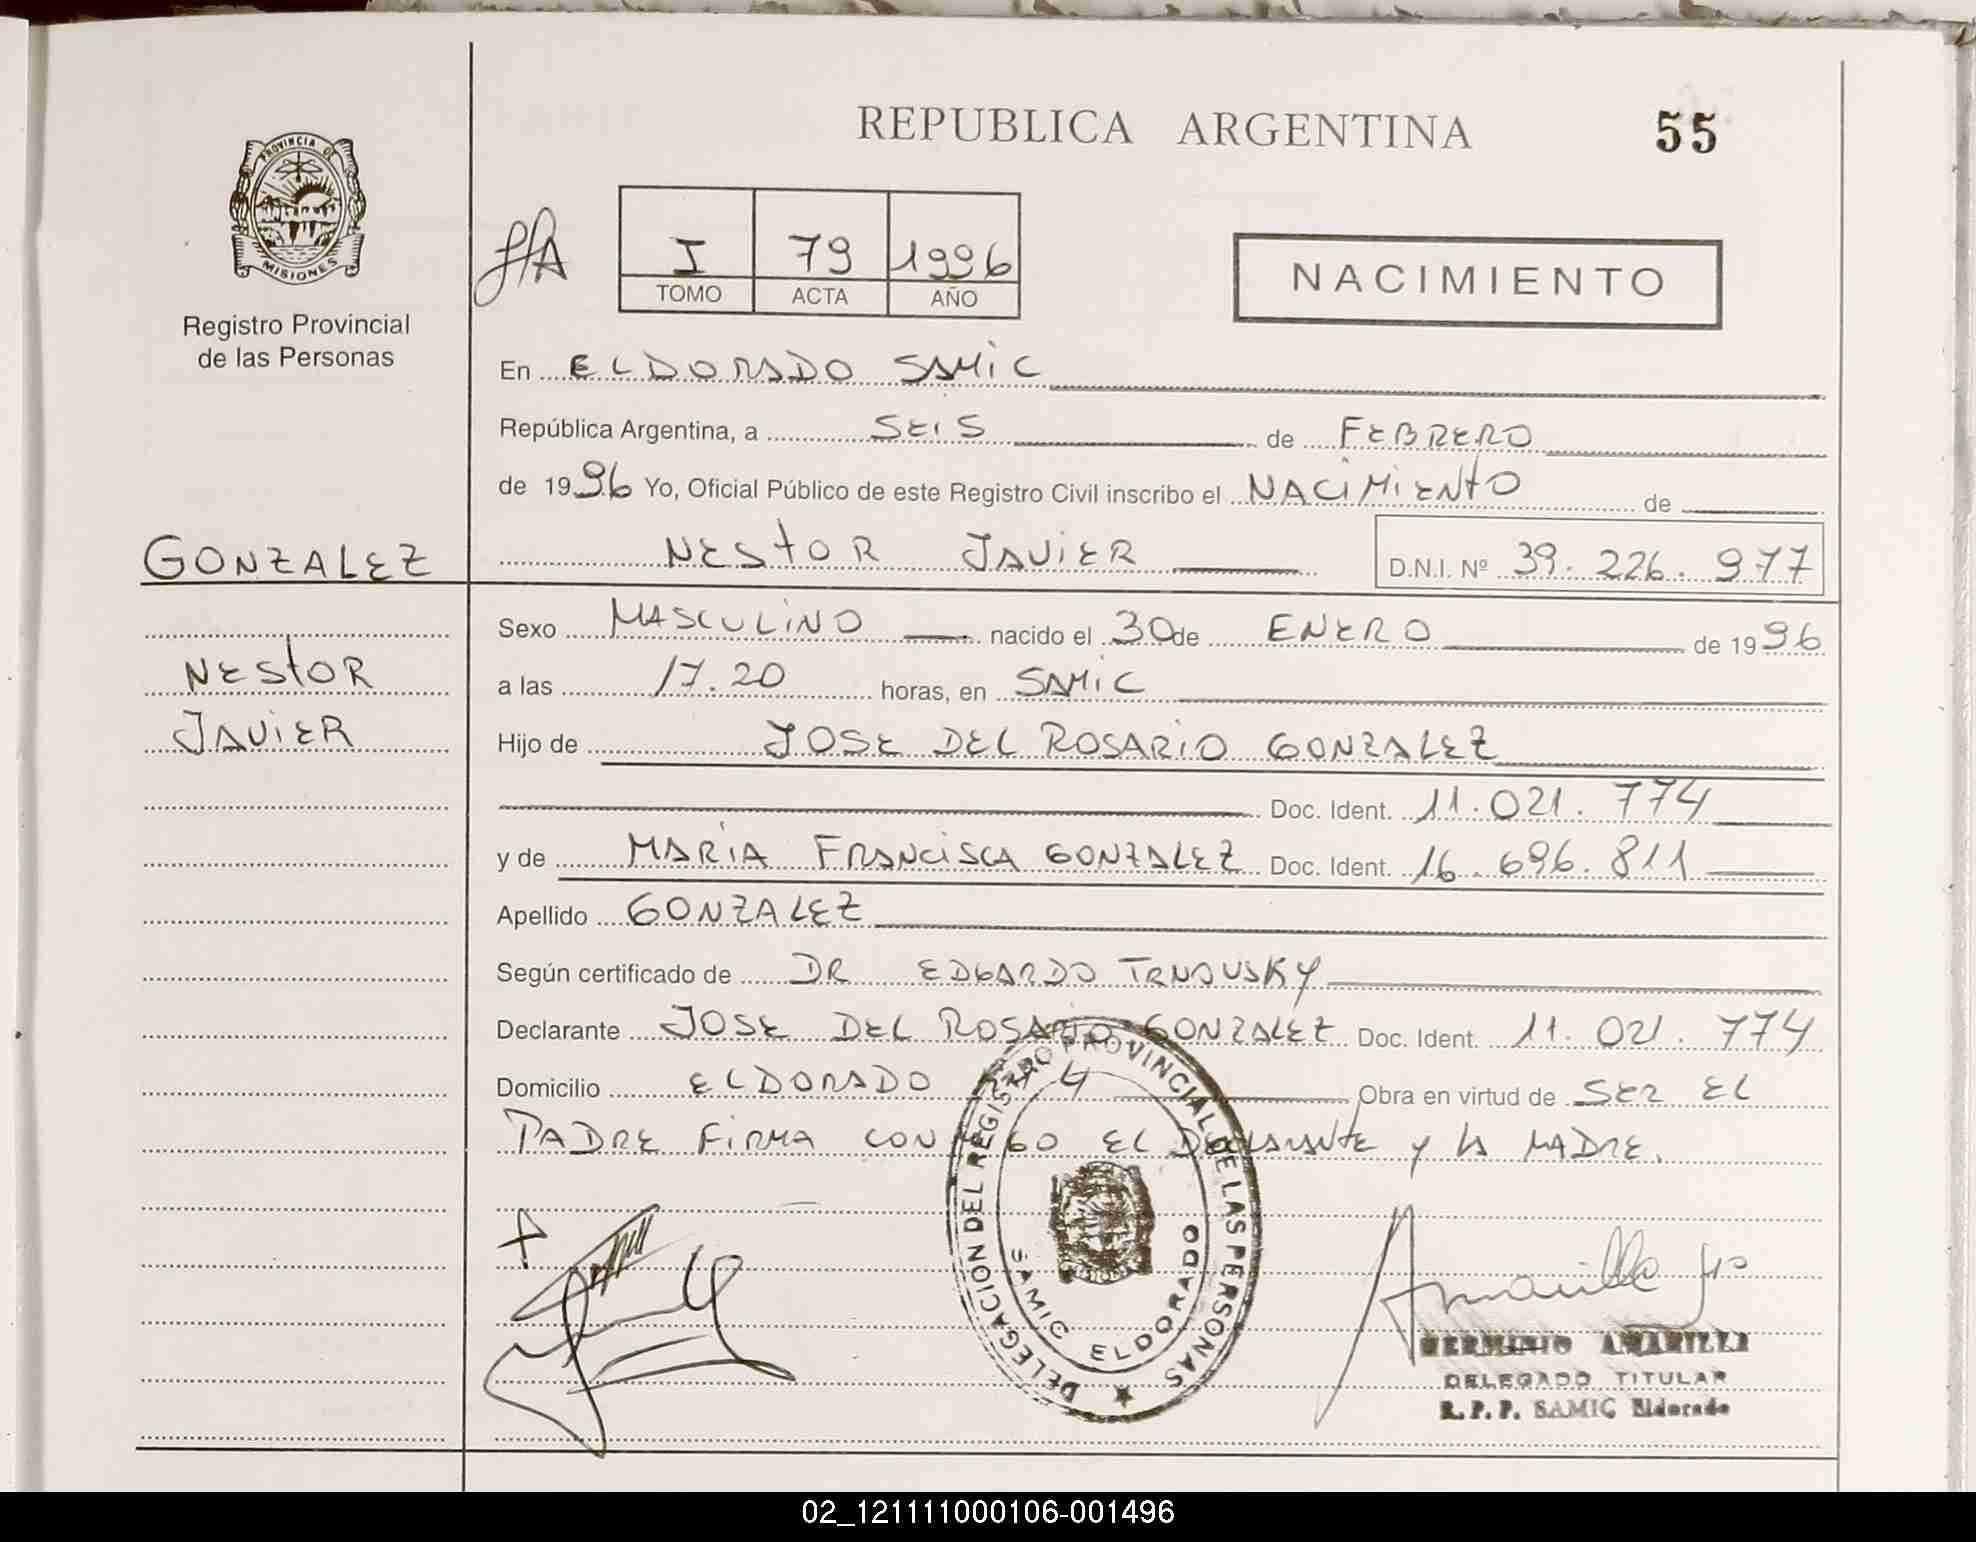 REPUBLICA ARGENTINA
55
PROVINCIA DE
MISIONES
Registro Provincial
de las Personas
I 79 1996
TOMO ACTA AÑO
NACIMIENTO
En ELDORADO SAMIC
República Argentina, a SEIS de FEBRERO
de 1996 Yo, Oficial Público de este Registro Civil inscribo el NACIMIENTO de
GONZALEZ
NESTOR JAVIER D.N.I. Nº 39.226.977
Sexo MASCULINO nacido el 30 de ENERO de 1996
NESTOR
a las 17.20 horas, en SAMIC
JAVIER
Hijo de JOSE DEL ROSARIO GONZALEZ
Doc. Ident. 11.021.774
y de MARIA FRANCISCA GONZALEZ Doc. Ident. 16.696.811
Apellido GONZALEZ
Según certificado de DR EDGARDO TRNOVSKY
Declarante JOSE DEL ROSARIO GONZALEZ Doc. Ident. 11.021.774
Domicilio ELDORADO Obra en virtud de SER EL
PADRE FIRMA CONMIGO EL DECLARANTE Y LA MADRE.
DELEGACION DEL REGISTRO PROVINCIAL DE LAS PERSONAS
SAMIC ELDORADO
Amarilla
HERMINIO AMARILLA
DELEGADO TITULAR
R.P.P. SAMIC Eldorado
02_121111000106-001496